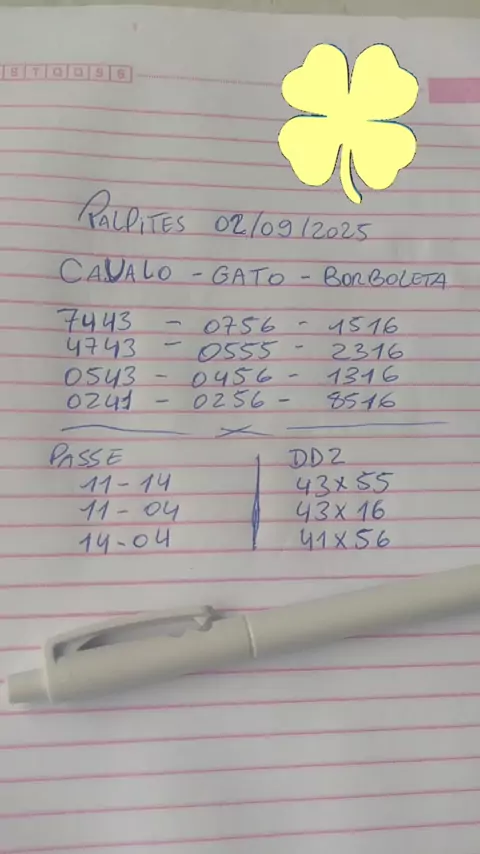 S T Q Q S S
PALPITES 02/09/2025
CAVALO - GATO - BORBOLETA
7443 - 0756 - 1516
4743 - 0555 - 2316
0543 - 0456 - 1316
0241 - 0256 - 8516
PASSE
11-14
11-04
14-04
DDZ
43x55
43x16
41x56